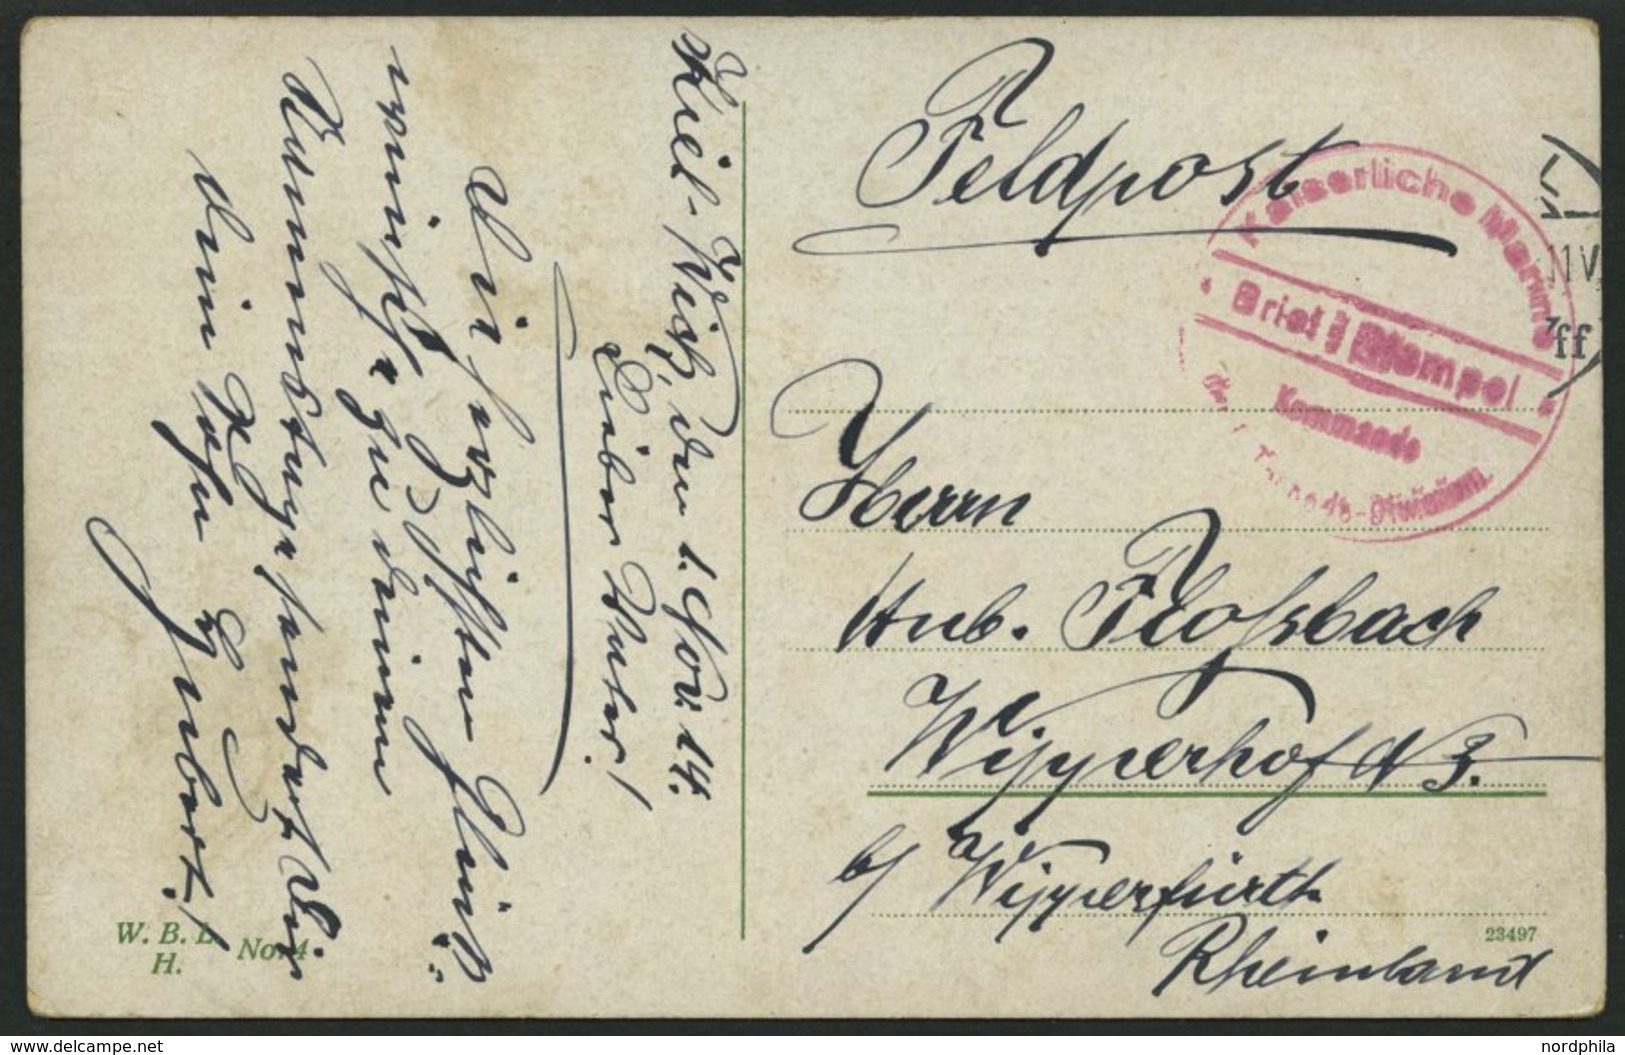 Kiel-Wik, den 1. Nov. 14.
Lieber Vater!
Die herzlichsten Glück
wünsche zu deinem
Namenstage sendet Dir
Dein Sohn
Hubert!
W. B. L.
H.
No. 4
Feldpost
Kaiserliche Marine
Brief Stempel
Kommando
Torpedo-Division
11 V
Herrn
Hub. Floßbach
Wipperhof N 3.
b/ Wipperfürth
Rheinland
23497
www.delcampe.net
nordphila